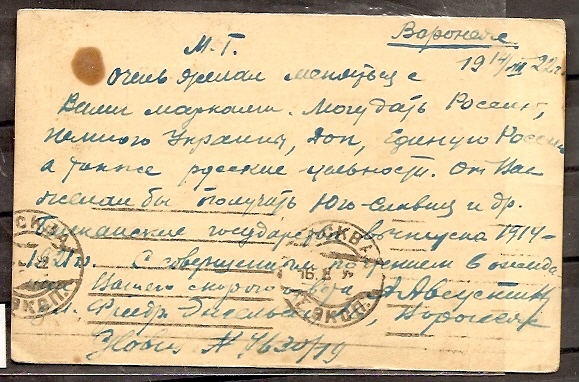 Воронеж
М.Г. 19 14/VIII 22 г.
Очень желал меняться с
Вами марками. Могу дать Россию,
немного Украины, Азп, Единую Россию
а также русские цельности. От Вас
желал бы получить Юго-Славию и др.
Балканские государства выпуска 1914-
1921 г. С совершенным почтением в ожида-
нии Вашего скорого ответа А. Августин
Воронеж
№ 7630/19
МОСКВА
МОСКВА
ЭКСП.
ЭКСП.